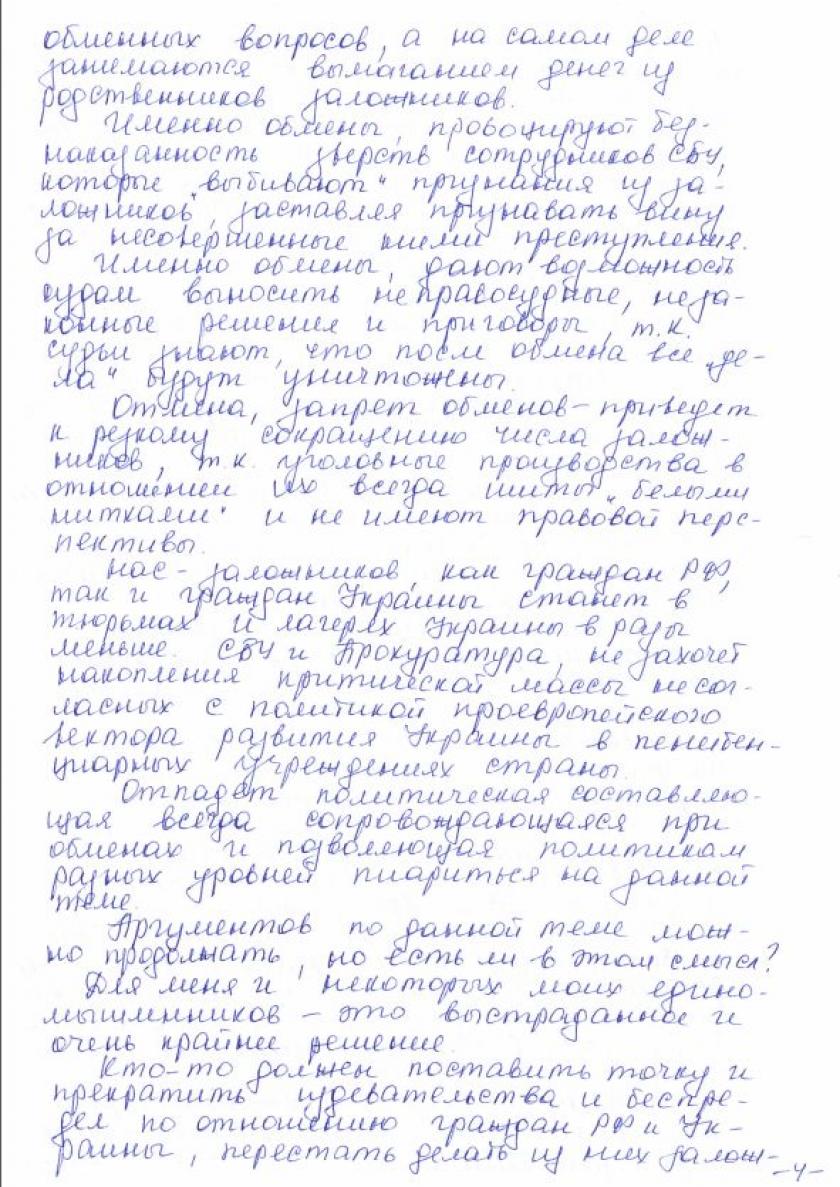 обменных вопросов, а на самом деле
занимаются вымаганием денег из
родственников заложников.
Именно обмены, провоцируют без-
наказанность зверств сотрудников СБУ,
которые „выбивают“ признания из за-
ложников, заставляя признавать вину
за несовершенные ними преступления.
Именно обмены, дают возможность
судам выносить неправосудные, неза-
конные решения и приговоры, т.к.
судьи знают, что после обмена все „де-
ла“ будут уничтожены.
Отмена, запрет обменов – приведет
к резкому сокращению числа залож-
ников, т.к. уголовные производства в
отношении их всегда шиты „белыми
нитками“ и не имеют правовой перс-
пективы.
Нас – заложников, как граждан РФ,
так и граждан Украины станет в
тюрьмах и лагерях Украины в разы
меньше. СБУ и Прокуратура, не захочет
накопления критической массы несог-
ласных с политикой проевропейского
вектора развития Украины в пенитен-
циарных учреждениях страны.
Отпадет политическая составляю-
щая всегда сопровождающаяся при
обменах и позволяющая политикам
разных уровней пиариться на данной
теме.
Аргументов по данной теме мож-
но продолжать, но есть ли в этом смысл?
Для меня и некоторых моих едино-
мышленников – это выстраданное и
очень крайнее решение.
Кто-то должен поставить точку и
прекратить издевательства и беспре-
дел по отношению граждан РФ и Ук-
раины, перестать делать из них залож-
-4-